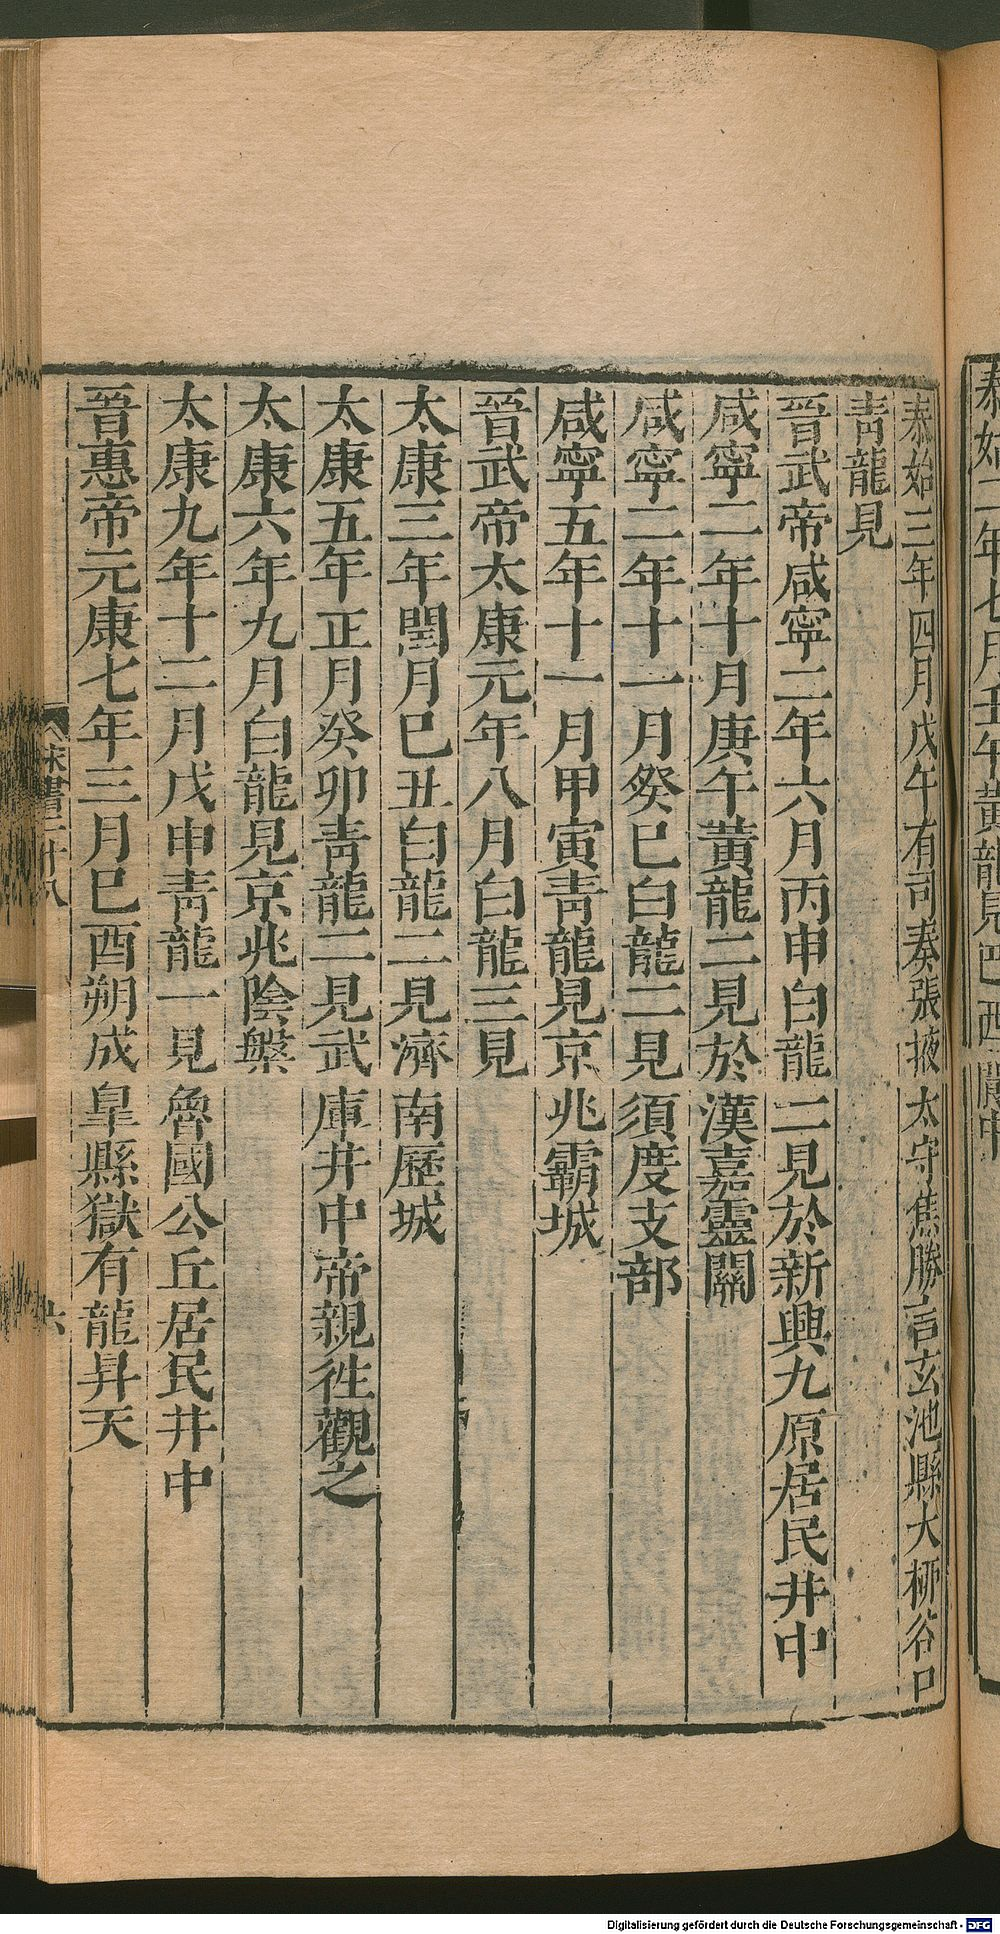 泰始二年七月壬午黃龍見巴西閬中
泰始三年四月戊午有司奏張掖太守焦勝言玄池縣大柳谷口
靑龍見
晉武帝咸寧二年六月丙申白龍二見於新興九原居民井中
咸寧二年十月庚午黃龍二見於漢嘉靈關
咸寧二年十一月癸巳白龍二見須度支部
咸寧五年十一月甲寅靑龍見京兆霸城
晉武帝太康元年八月白龍三見
太康三年閏月巳丑白龍二見濟南歷城
太康五年正月癸卯靑龍二見武庫井中帝親徃觀之
太康六年九月白龍見京兆陰槃
太康九年十二月戊申靑龍一見魯國公丘居民井中
晉惠帝元康七年三月巳酉朔成皐縣獄有龍昇天
宋書二十八
六
Digitalisierung gefördert durch die Deutsche Forschungsgemeinschaft - DFG